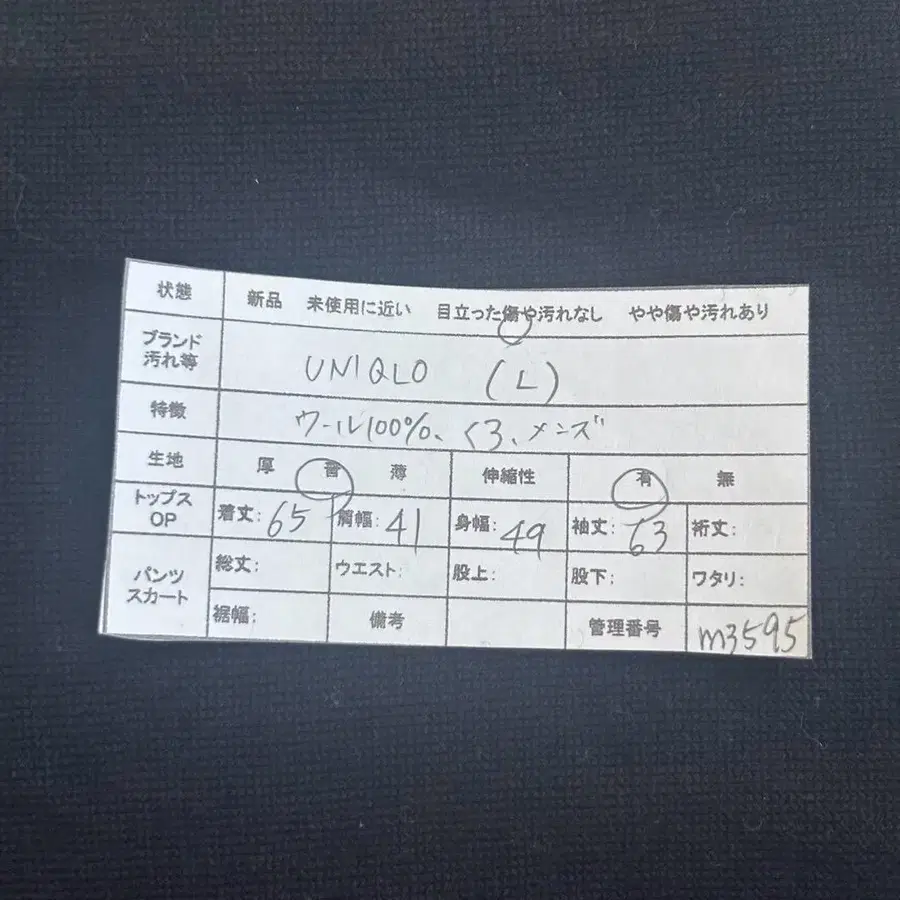 状態 新品 未使用に近い 目立った傷や汚れなし やや傷や汚れあり
ブランド
汚れ等 UNIQLO (L)
特徴 ウール100%、くろ、メンズ
生地 厚 普 薄 伸縮性 有 無
トップス
OP 着丈: 65 肩幅: 41 身幅: 49 袖丈: 63 裄丈:
パンツ
スカート 総丈: ウエスト: 股上: 股下: ワタリ:
裾幅: 備考 管理番号 m3595